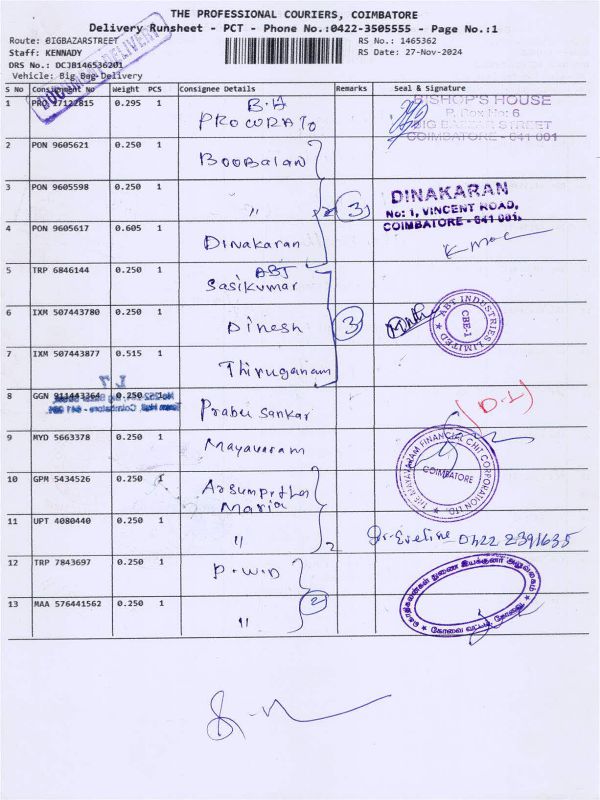 THE PROFESSIONAL COURIERS, COIMBATORE
Delivery Runsheet - PCT - Phone No.:0422-3505555 - Page No.:1
Route: BIGBAZARSTREET
RS No.: 1465362
Staff: KENNADY
RS Date: 27-Nov-2024
DRS No.: DCJB146536201
Vehicle: Big Bag Delivery
DELIVERY
S No Consignment No Weight PCS Consignee Details Remarks Seal & Signature
1 PRO 17122815 0.295 1 B.H
PROCURATO
BISHOP'S HOUSE
P. Box No: 6
BIG BAZAAR STREET
COIMBATORE - 641 001
2 PON 9605621 0.250 1 Boobalan
3 PON 9605598 0.250 1 " 3
DINAKARAN
No: 1, VINCENT ROAD,
COIMBATORE - 641 001.
4 PON 9605617 0.605 1 Dinakaran
5 TRP 6846144 0.250 1 ABT
Sasikumar
6 IXM 507443780 0.250 1 Dinesh 3
ABT INDUSTRIES LIMITED
CBE-1
7 IXM 507443877 0.515 1 Thiruganam
8 GGN 911443364 0.250 1 Prabu Sankar
(D.I)
9 MYD 5663378 0.250 1 Mayavaram
THE MAYAVARAM FINANCIAL CHIT CORPORATION LTD.
COIMBATORE
10 GPM 5434526 0.250 1
Maria
11 UPT 4080440 0.250 1 " 2
Sr. Eveline 0422 2391635
12 TRP 7843697 0.250 1 P.W.D
13 MAA 576441562 0.250 1 " 2